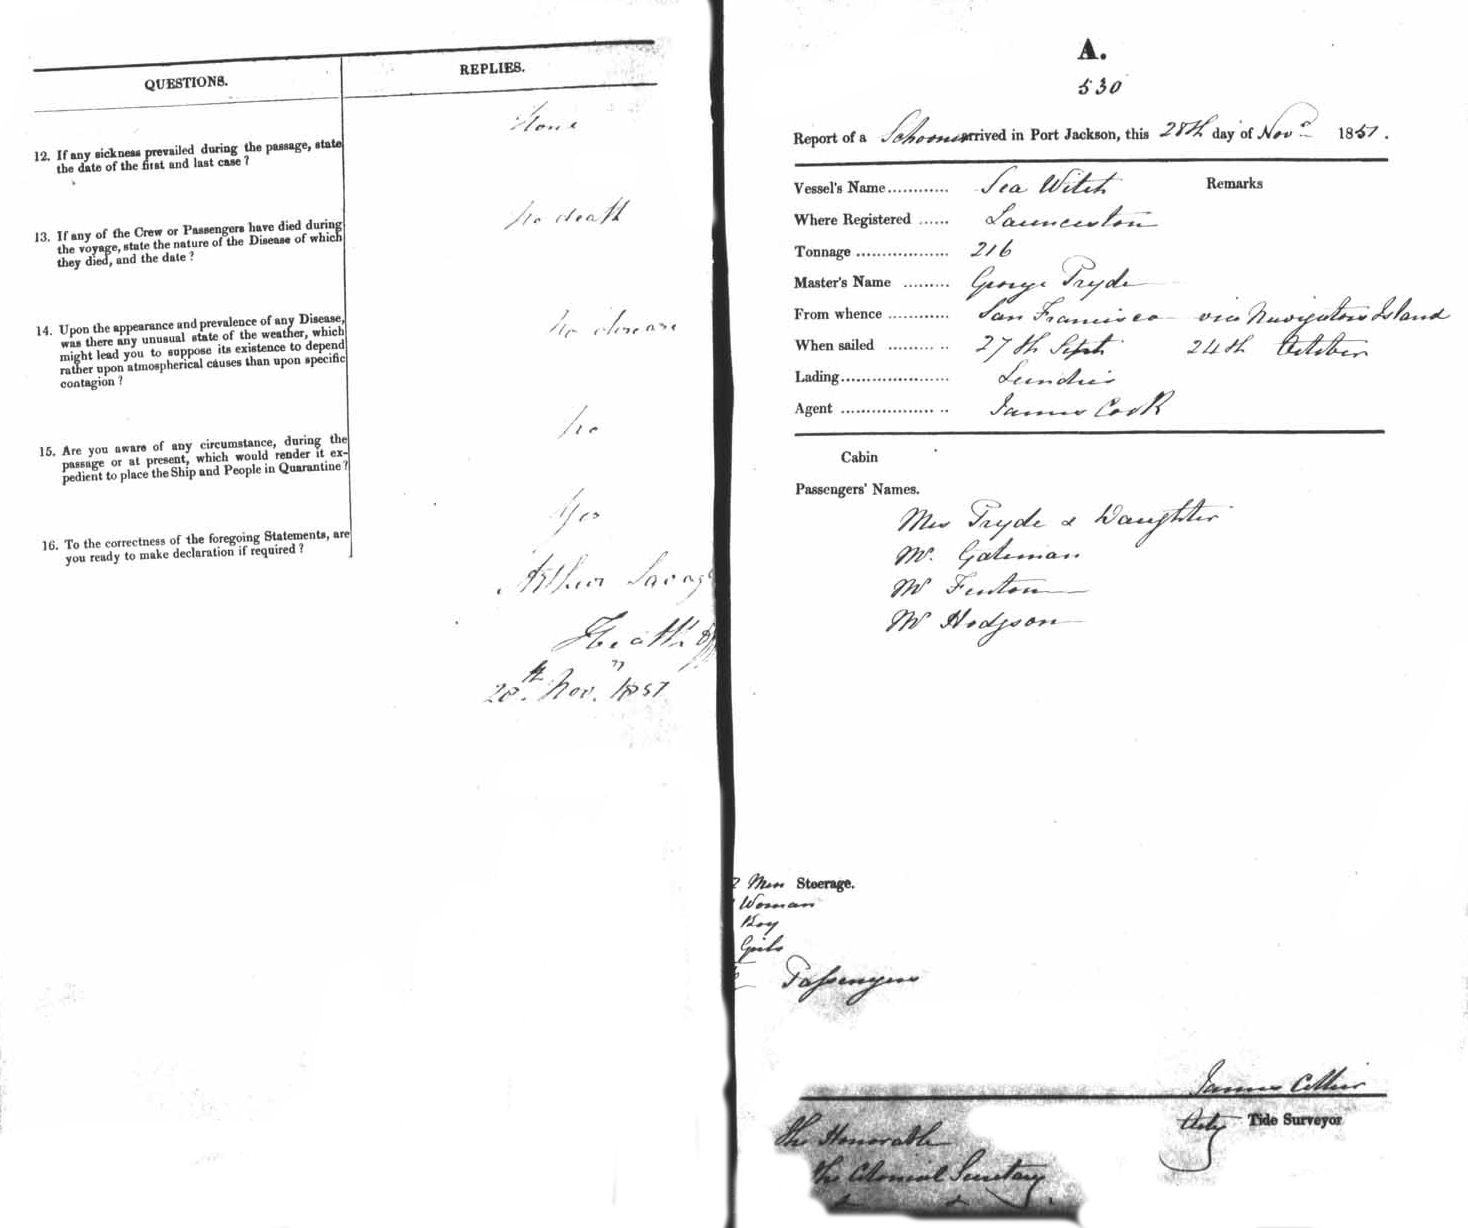 QUESTIONS.
REPLIES.
12. If any sickness prevailed during the passage, state
the date of the first and last case ?
None
13. If any of the Crew or Passengers have died during
the voyage, state the nature of the Disease of which
they died, and the date ?
No death
14. Upon the appearance and prevalence of any Disease,
was there any unusual state of the weather, which
might lead you to suppose its existence to depend
rather upon atmospherical causes than upon specific
contagion ?
No disease
15. Are you aware of any circumstance, during the
passage or at present, which would render it ex-
pedient to place the Ship and People in Quarantine ?
No
16. To the correctness of the foregoing Statements, are
you ready to make declaration if required ?
Yes
Arthur Savag
Health
28th Nov. 1851
A.
530
Report of a Schooner arrived in Port Jackson, this 28th day of Novr 1851.
Vessel's Name............ Sea Witch Remarks
Where Registered ...... Launceston
Tonnage .................. 216
Master's Name ......... George Pryde
From whence ............ San Francisco via Navigators Island
When sailed ......... .. 27th Sept 24th October
Lading.....................
Agent .................. .. James Cook
Cabin
Passengers' Names.
Mrs Pryde & Daughter
Mr. Gateman
Mr Fenton
Mr Hodgson
2 Men Steerage.
Woman
Boy
Girls
Passengers
James Collier
Actg Tide Surveyor
The Honorable
The Colonial Secretary